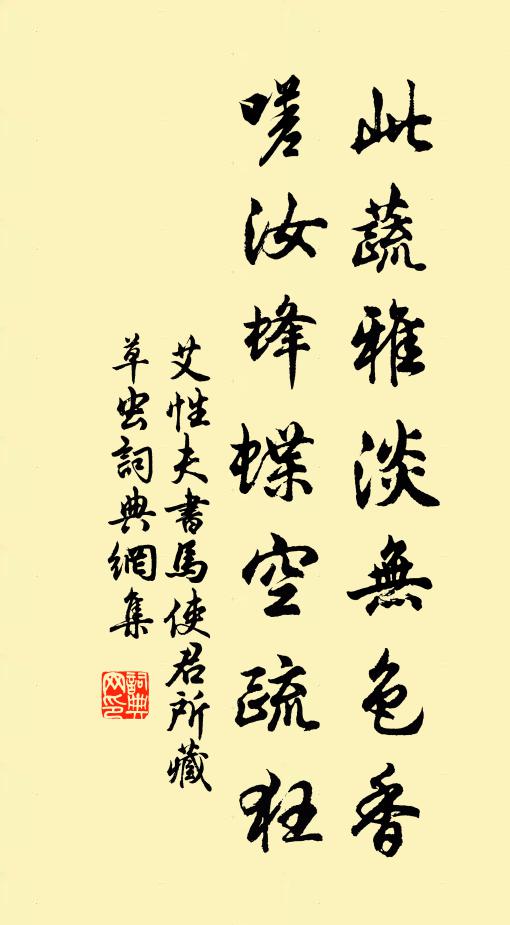 此蔬雅淡無色香
嗟汝蜂蝶空疏狂
艾性夫書馬使君所藏
草虫詞典網集
詞典網印